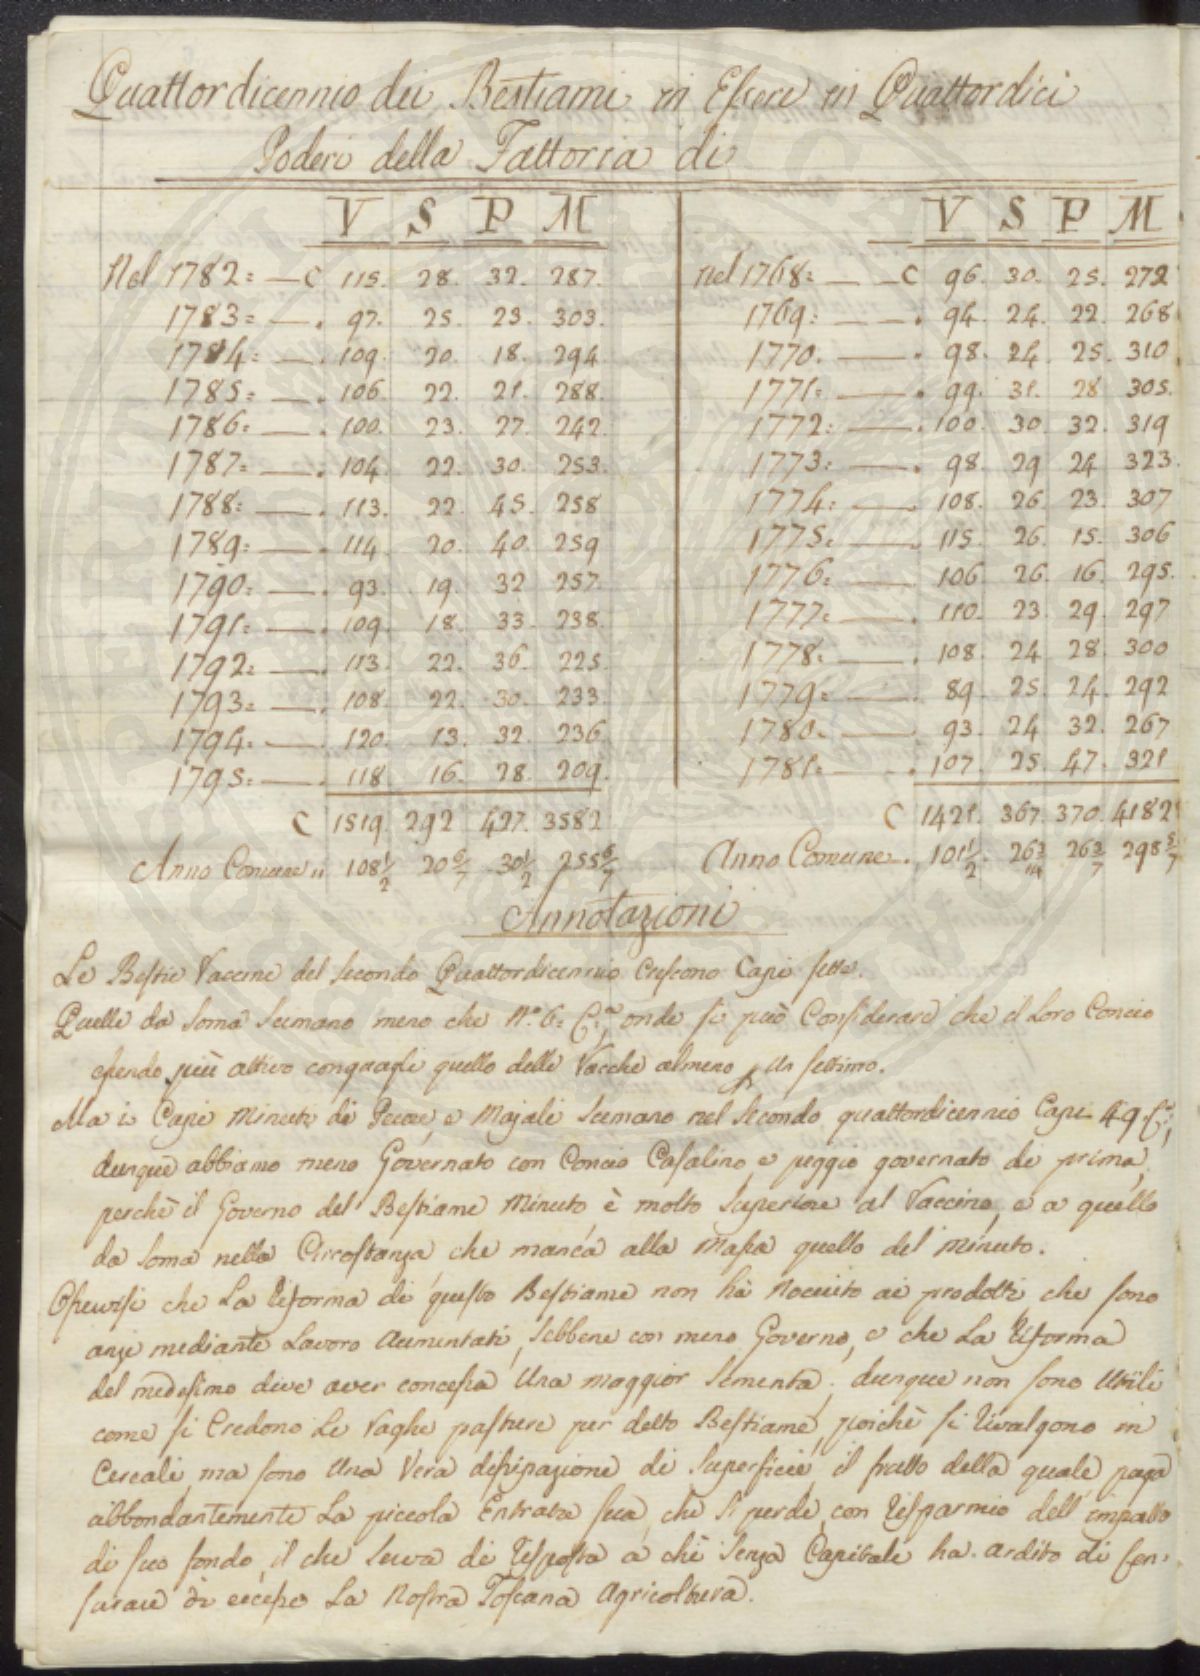 Quattordicennio dei Bestiami in Essere in Quattordici
Poderi della Fattoria di
V S P M V S P M
Nel 1782= — C 115. 28. 32. 287. nel 1768= — C 96. 30. 25. 272
1783= — . 97. 25. 23. 303. 1769= — . 94. 24. 22. 268
1784= — . 109. 20. 18. 294. 1770. — . 98. 24. 25. 310
1785= — . 106. 22. 21. 288. 1771= — . 99. 31. 28 305.
1786= — . 100. 23. 27. 242. 1772= — . 100. 30. 32. 319
1787= — . 104. 22. 30. 253. 1773= — . 98. 29 24 323.
1788= — . 113. 22. 45. 258 1774= — . 108. 26. 23. 307
1789= — . 114 20. 40. 259 1775= — . 115. 26. 15. 306
1790= — . 93. 19. 32 257. 1776= — . 106 26 16. 295.
1791= — . 109. 18. 33. 238. 1777= — . 110. 23. 29. 297
1792= — . 113. 22. 36. 225. 1778= — . 108. 24 28. 300
1793= — . 108. 22. 30. 233. 1779= — . 89. 25. 24. 292
1794= — . 120. 13. 32. 236 1780= — . 93. 24 32. 267
1795= — . 118 16. 28. 209. 1781= — . 107. 25. 47. 321
C 1519. 292 427. 3582 C 1421. 367. 370. 4182
Anno Comune „ 108 1/2 20 6/7 30 1/2 255 6/7 Anno Comune . 101 1/2 26 3/14 26 3/7 298 5/7
Annotazioni
Le Bestie Vaccine del secondo Quattordicennio crescono Capi sette.
Quelle da soma scemano meno che N.° 6: C.i, onde si può Considerare che il Loro Concio
essendo più attivo conguagli quello delle Vacche almeno p un settimo.
Ma i Capi Minuti di Pecore, e Majali scemano nel secondo quattordicennio Capi 49 C.i,
dunque abbiamo meno Governato con Concio Casalino, e peggio governato di prima,
perchè il Governo del Bestiame Minuto, è molto superiore al Vaccino, e a quello
da soma nella Circostanza, che manca alla Massa quello del Minuto.
Osservisi che La riforma di questo Bestiame non hà Nociuto ai prodotti che sono
anzi mediante Lavoro Aumentati, sebbene con meno Governo, e che La riforma
del medesimo deve aver concessa Una maggior sementa; dunque non sono Utili
come si Credono Le Vaghe pasture per detto Bestiame, poichè si rivolgono in
Cereali, ma sono Una Vera dissipazione di superficie il frutto della quale paga
abbondantemente La piccola Entrata sua, che si perde, con risparmio dell'
di suo fondo, il che serva di risposta a chi senza Capitale ha ardito di Cen:
surare La Nostra Toscana Agricoltura.